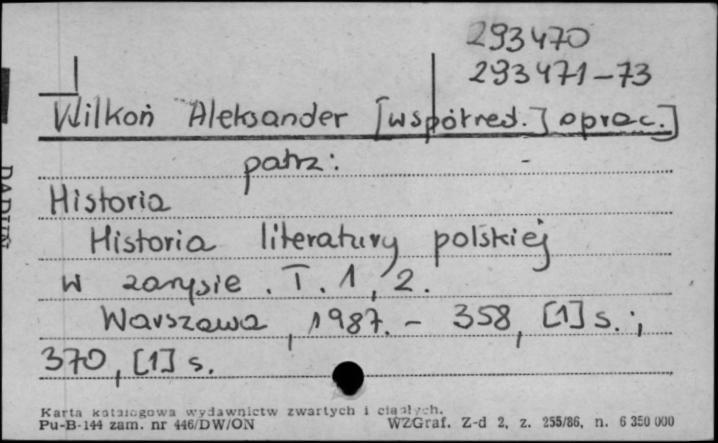 293470
293471-73
Wilkoń Aleksander [współred.] oprac.]
patrz:
Historia
Historia literatury polskiej
w zarysie. T. 1, 2.
Warszawa, 1987. - 358, [1] s.;
370, [1] s.
Karta katalogowa wydawnictw zwartych i ciągłych.
Pu-B-144 zam. nr 446/DW/ON WZGraf. Z-d 2, z. 255/86, n. 6 350 000